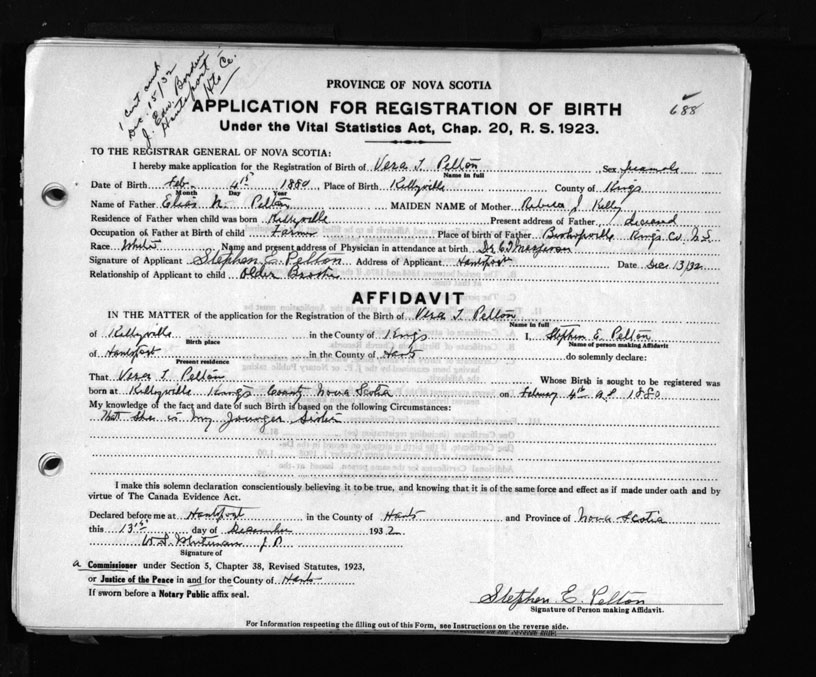 1 cert and
Dec. 15/32
J. Edw. Borden
Hantsport
Hts Co.
688
PROVINCE OF NOVA SCOTIA
APPLICATION FOR REGISTRATION OF BIRTH
Under the Vital Statistics Act, Chap. 20, R. S. 1923.
TO THE REGISTRAR GENERAL OF NOVA SCOTIA:
I hereby make application for the Registration of Birth of Vera T Pelton Sex female
Name in full
Date of Birth Feb. 4th 1880 Place of Birth Kellyville County of Kings
Month Day Year
Name of Father Elias N. Pelton MAIDEN NAME of Mother Rebecca J Kelly
Residence of Father when child was born Kellyville Present address of Father deceased
Occupation of Father at Birth of child Farmer Place of Birth of Father Bishopville Kings Co N.S
Race White Name and present address of Physician in attendance at birth Dr
Signature of Applicant Stephen E. Pelton Address of Applicant Hantsport Date Dec 13/32
Relationship of Applicant to child Older Brother
AFFIDAVIT
IN THE MATTER of the application for the Registration of the Birth of Vera T Pelton
Name in full
of Kellyville in the County of Kings I, Stephen E. Pelton
Birth place Name of person making Affidavit
of Hantsport in the County of Hants do solemnly declare:
Present residence
That Vera T Pelton Whose Birth is sought to be registered was
born at Kellyville Kings County Nova Scotia on February 4th A.D. 1880
My knowledge of the fact and date of such Birth is based on the following Circumstances:
That she is my Younger Sister
I make this solemn declaration conscientiously believing it to be true, and knowing that it is of the same force and effect as if made under oath and by
virtue of The Canada Evidence Act.
Declared before me at Hantsport in the County of Hants and Province of Nova Scotia
this 13th day of December 1932
W. S. Whitman J.P.
Signature of
a Commissioner under Section 5, Chapter 38, Revised Statutes, 1923,
or Justice of the Peace in and for the County of Hants
If sworn before a Notary Public affix seal.
Stephen E. Pelton
Signature of Person making Affidavit.
For Information respecting the filling out of this Form, see Instructions on the reverse side.